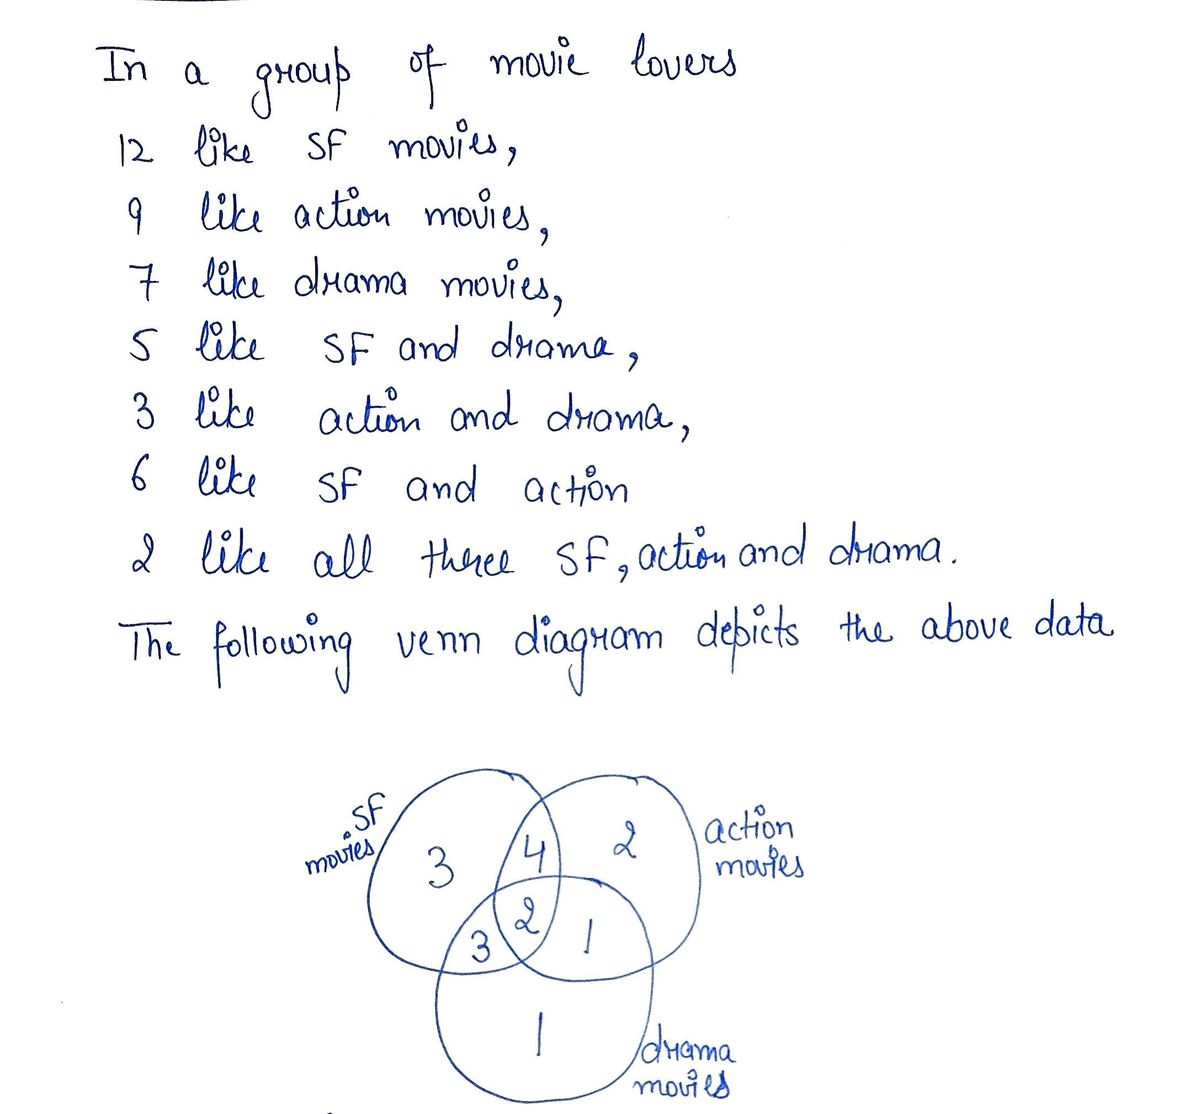 In a group of movie lovers
12 like SF movies,
9 like action movies,
7 like drama movies,
5 like SF and drama,
3 like action and drama,
6 like SF and action
2 like all three SF, action and drama.
The following venn diagram depicts the above data
SF
movies
3
4
2
action
movies
2
3
1
1
drama
movies